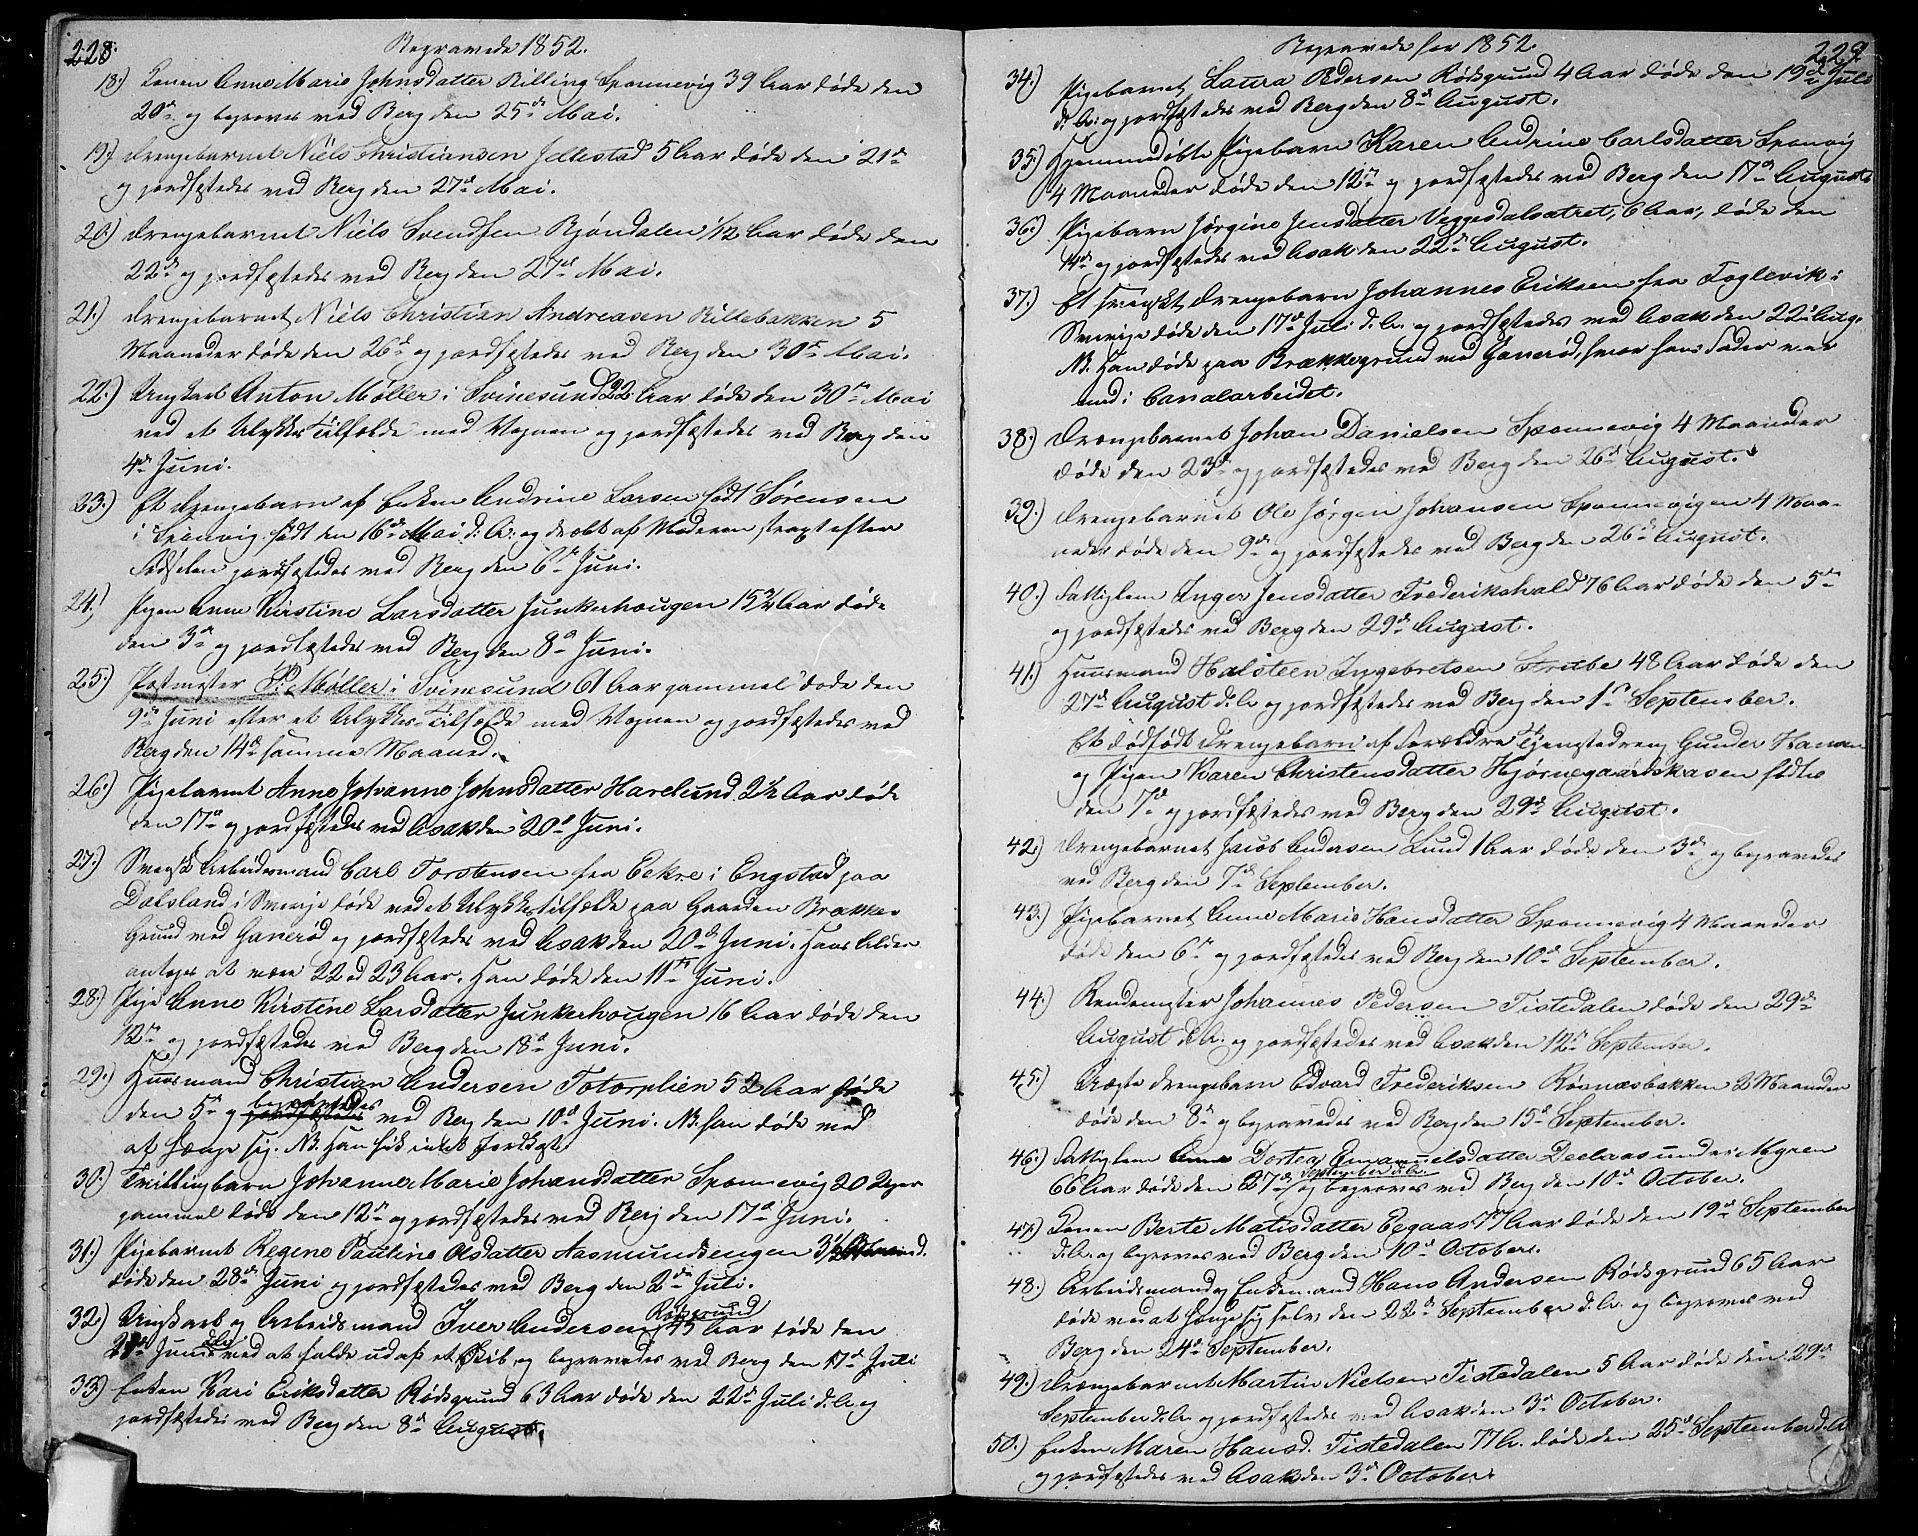 228.
Begravede 1852.
18.) Konen Anne Marie Johnsdatter Killing Sponnevig 39 Aar døde den
20de og begroves ved Berg den 25de Mai.
19.) Drengebarnet Niels Christiansen Jellestad 5 Aar døde den 21de
og jordfæstedes ved Berg den 27de Mai.
20.) Drengebarnet Niels Svendsen Bjøndalen 1/12 Aar døde den
22de og jordfæstedes ved Berg den 27de Mai.
21.) Drengebarnet Niels Christian Andreasen Killebakken 5
Maaneder døde den 26de og jordfæstedes ved Berg den 30te Mai.
22.) Ungkarl Anton Møller i Svinesund 22 Aar døde den 30te Mai
ved et Ulykkes Tilfælde med Vognen og jordfæstedes ved Berg den
4de Juni.
23.) Et Drengebarn af Enken Andrine Larsen født Sørensen
i Sponvig født den 16de Mai d. A. og dræbt af Moderen strax efter
Fødselen jordfæstedes ved Berg den 6te Juni.
24.) Pigen Anne Kirstine Larsdatter Junkerhougen 15 3/4 Aar døde
den 3de og jordfæstedes ved Berg den 8de Juni.
25.) Postmester P. Møller i Svinesund 61 Aar gammel døde den
9de Juni efter et Ulykkes Tilfælde med Vognen og jordfæstedes ved
Berg den 14de samme Maaned.
26.) Pigebarnet Anne Johanne Johnsdatter Harelund 2 1/2 Aar døde
den 17de og jordfæstedes ved Asak den 20de Juni.
27.) Svensk Arbeidsmand Carl Torstensen fra Eekre i Engstad paa
Dalsland i Sverije døde ved et Ulykkestilfælde paa Gaarden Brække
Grund ved Ganerød og jordfæstedes ved Asak den 20de Juni. Hans Alder
antages at være 22 ad 23 Aar. Han døde den 11te Juni.
28.) Pige Anne Kirstine Larsdatter Junkerhougen 16 Aar døde den
12te og jordfæstedes ved Berg den 18de Juni.
29.) Huusmand Christian Andersen Totorplien 52 Aar døde
begravedes
den 5te og jordfæstedes ved Berg den 10de Juni. NB. han døde ved
at hænge sig. NB. Han fik intet Jordkast
30.) Tvillingbarn Johanne Marie Johansdatter Sponnevig 20 Uger
gammel døde den 12te og jordfæstedes ved Berg den 17de Juni.
31.) Pigebarnet Regine Pauline Olsdatter Aasmundsengen 3 1/2
døde den 28de Juni og jordfæstedes ved Berg den 2den Juli.
Rødsgrund
32.) Ungkarl og Arbeidsmand Iver Andersen 45 Aar døde den
Juni d. A. ved at falde ud af et Skib og begravedes ved Berg den 17de Juli
33.) Enken Kari Eriksdatter Rødsgrund 63 Aar døde den 22de Juli d. A. og
jordfæstedes ved Berg den 8de August.
229
Begravede for 1852.
34.) Pigebarnet Laura Pedersen Rødsgrund 4 Aar døde den 19de Juli
d. A. og jordfæstedes ved Berg den 8de August.
35.) Hjemmedøbte Pigebarn Karen Andrine Carlsdatter Sponvig
4 Maaneder døde den 12te og jordfæstedes ved Berg den 17de August
36.) Pigebarn Jørgine Jensdatter Veggesdalsætret, 6 Aar, døde den
og jordfæstedes ved Asak den 22de August.
37.) Et svenskt Drengebarn Johannes Eriksen fra Foglevik i
Sverije døde den 17de Juli d. A. og jordfæstedes ved Asak den 22de Aug.
NB. Han døde paa Brækkegrund ved Ganerød, hvor hans Fader var
med i Canalarbeidet.
38.) Drengebarnet Johan Danielsen Sponnevig 4 Maaneder
døde den 23de og jordfæstedes ved Berg den 26de August.
39.) Drengebarnet Ole Jørgen Johansen Sponnevigen 4 Maa-
neder døde den 9de og jordfæstedes ved Berg den 26de August.
40.) Fattiglem Inger Jensdatter Frederikshald 76 Aar døde den 5te
og jordfæstedes ved Berg den 29de August.
41.) Huusmand Halsteen Ingebretsen Strube 48 Aar døde den
27de August d. A. og jordfæstedes ved Berg den 1ste September.
Et dødfødt Drengebarn af Forældre Tjenestedreng Gunder Hansen
og Pigen Karen Christensdatter Hjørnegaardskasen fødtes
den 7de og jordfæstedes ved Berg den 29de August.
42.) Drengebarnet Jacob Andersen Lund 1 Aar døde den 3de og begravedes
ved Berg den 7de September.
43.) Pigebarnet Anne Marie Hansdatter Sponnevig 4 Maaneder
døde den 6te og jordfæstedes ved Berg den 10de September.
44.) Rendemester Johannes Pedersen Tistedalen døde den 29de
August d. A. og jordfæstedes ved Asak den 12te September.
45.) Uægte Drengebarn Edvard Frederiksen Rosnæsbakken 2 Maaneder
døde den 8de og begravedes ved Berg den 15de September.
46.) Fattiglem Dortea Emanuelsdatter Deelaas under Myren
September d. A.
66 Aar døde den 27de og begroves ved Berg den 10de October.
47.) Konen Berte Matisdatter Eegaas 77 Aar døde den 19de September
d. A. og begroves ved Berg den 10de October.
48.) Arbeidsmand og Enkemand Hans Andersen Rødsgrund 65 Aar
døde ved at hænge sig selv den 22de September d. A. og begroves ved
Berg den 24de September.
49.) Drengebarnet Martin Nielsen Tistedalen 5 Aar døde den 29de
September d. A. og jordfæstedes ved Asak den 3de October.
50.) Enken Maren Hansd. Tistedalen 77 A. døde den 25de September d. A.
og jordfæstedes ved Asak den 3de October.